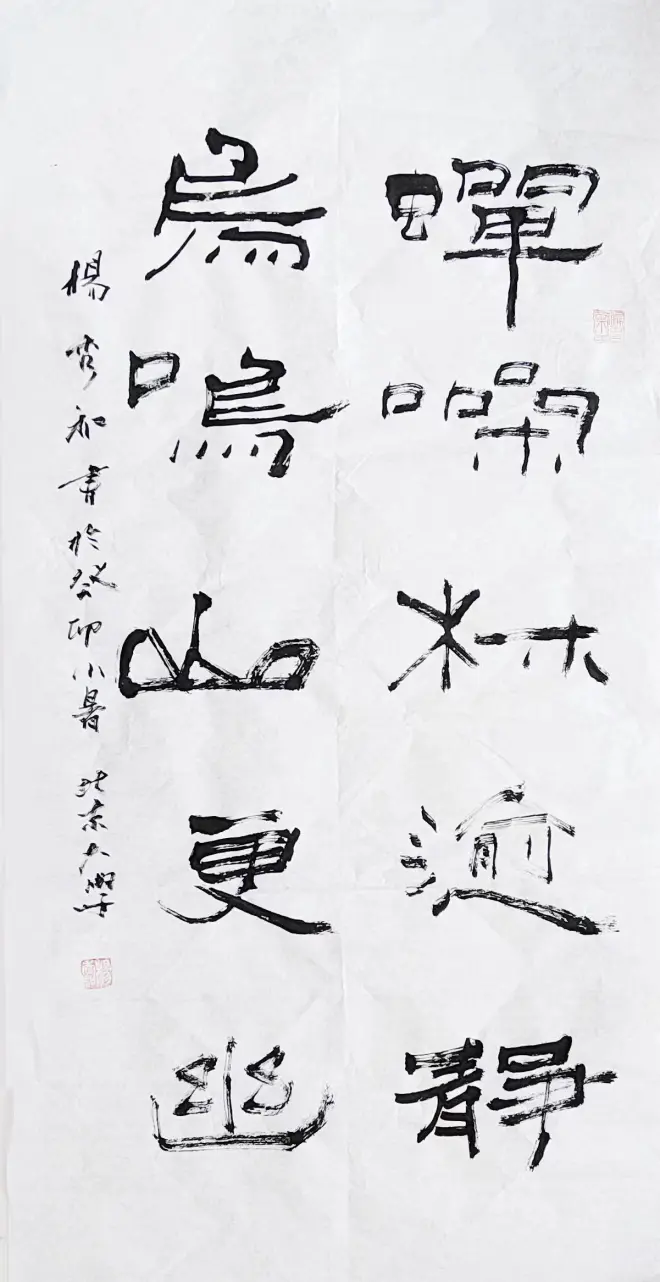 蟬噪林逾靜
鳥鳴山更幽
楊秀和書於癸卯小暑 北京大學